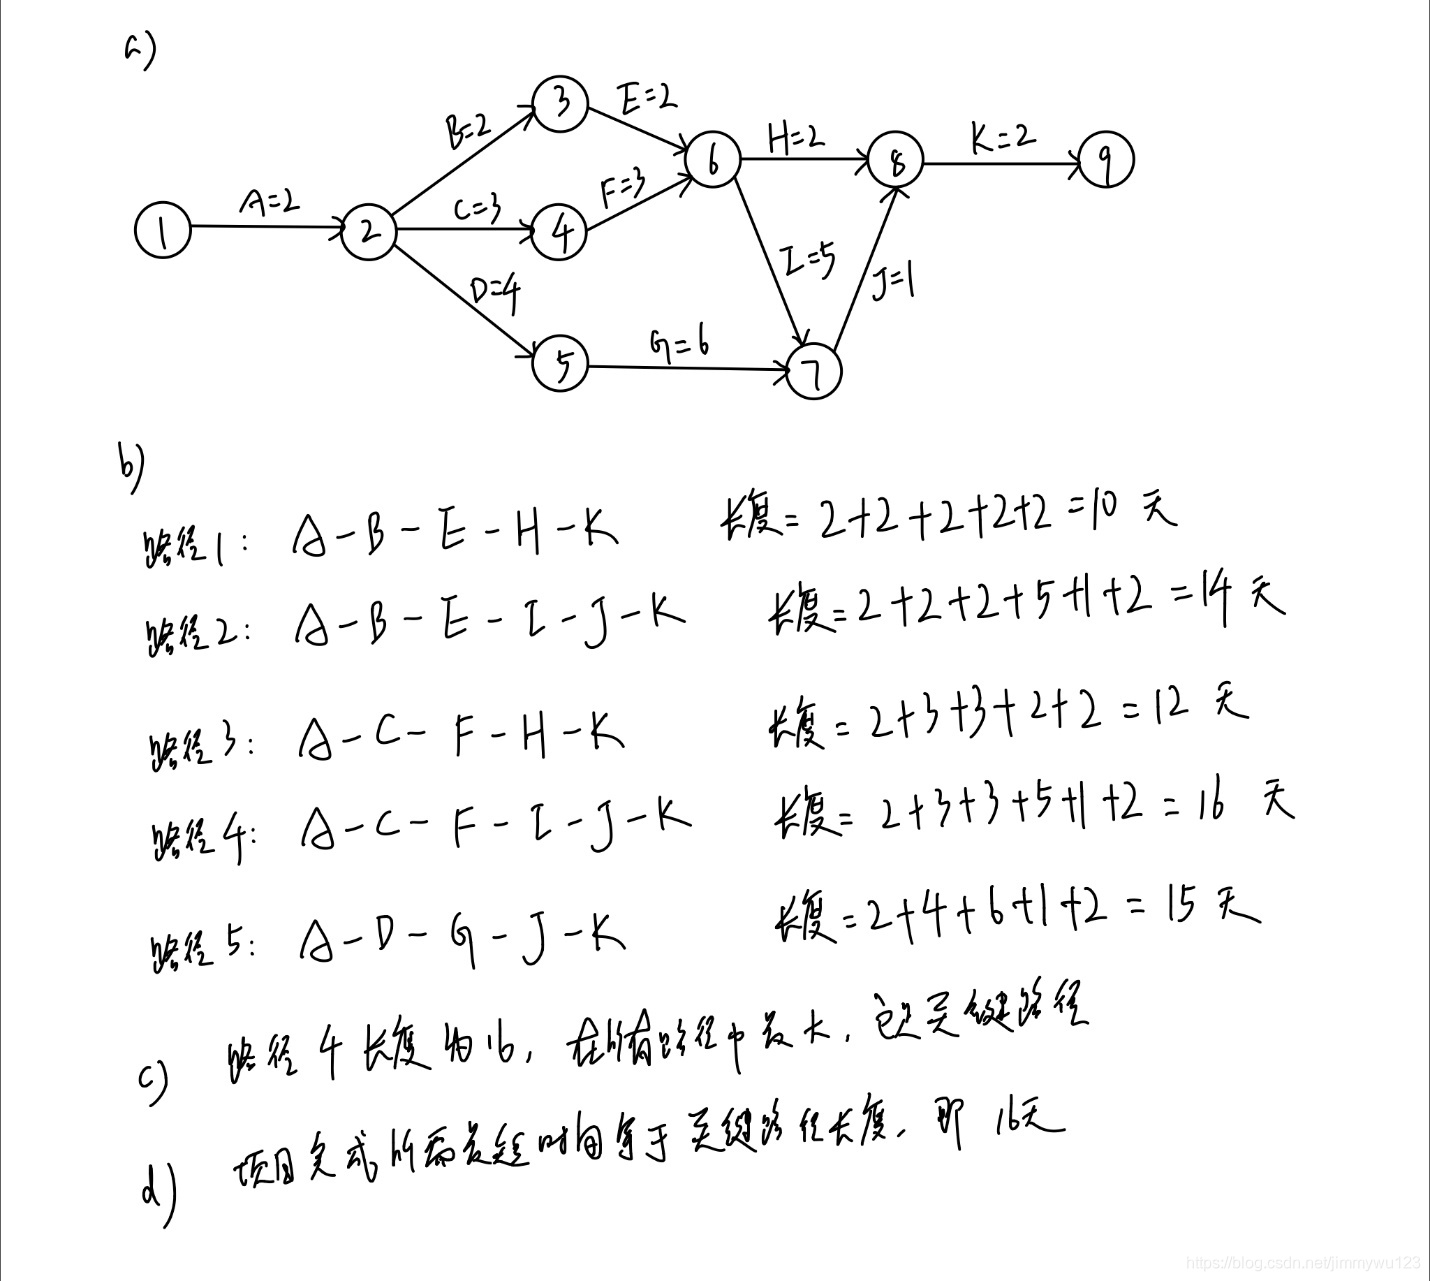 a)
B=2
3
E=2
A=2
C=3
F=3
6
H=2
8
K=2
9
1
2
4
D=4
I=5
J=1
5
G=6
7
b)
路径1: A-B-E-H-K 长度=2+2+2+2+2=10 天
路径2: A-B-E-I-J-K 长度=2+2+2+5+1+2=14 天
路径3: A-C-F-H-K 长度=2+3+3+2+2=12 天
路径4: A-C-F-I-J-K 长度=2+3+3+5+1+2=16 天
路径5: A-D-G-J-K 长度=2+4+6+1+2=15 天
c) 路径4长度为16, 在所有路径中最大, 它是关键路径
d) 项目完成所需最短时间等于关键路径长度, 即 16天
https://blog.csdn.net/jimmywu123